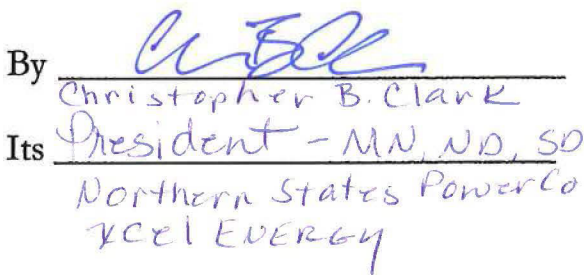 By
Christopher B. Clark
Its President - MN, ND, SD
Northern States Power Co
Xcel ENERGY